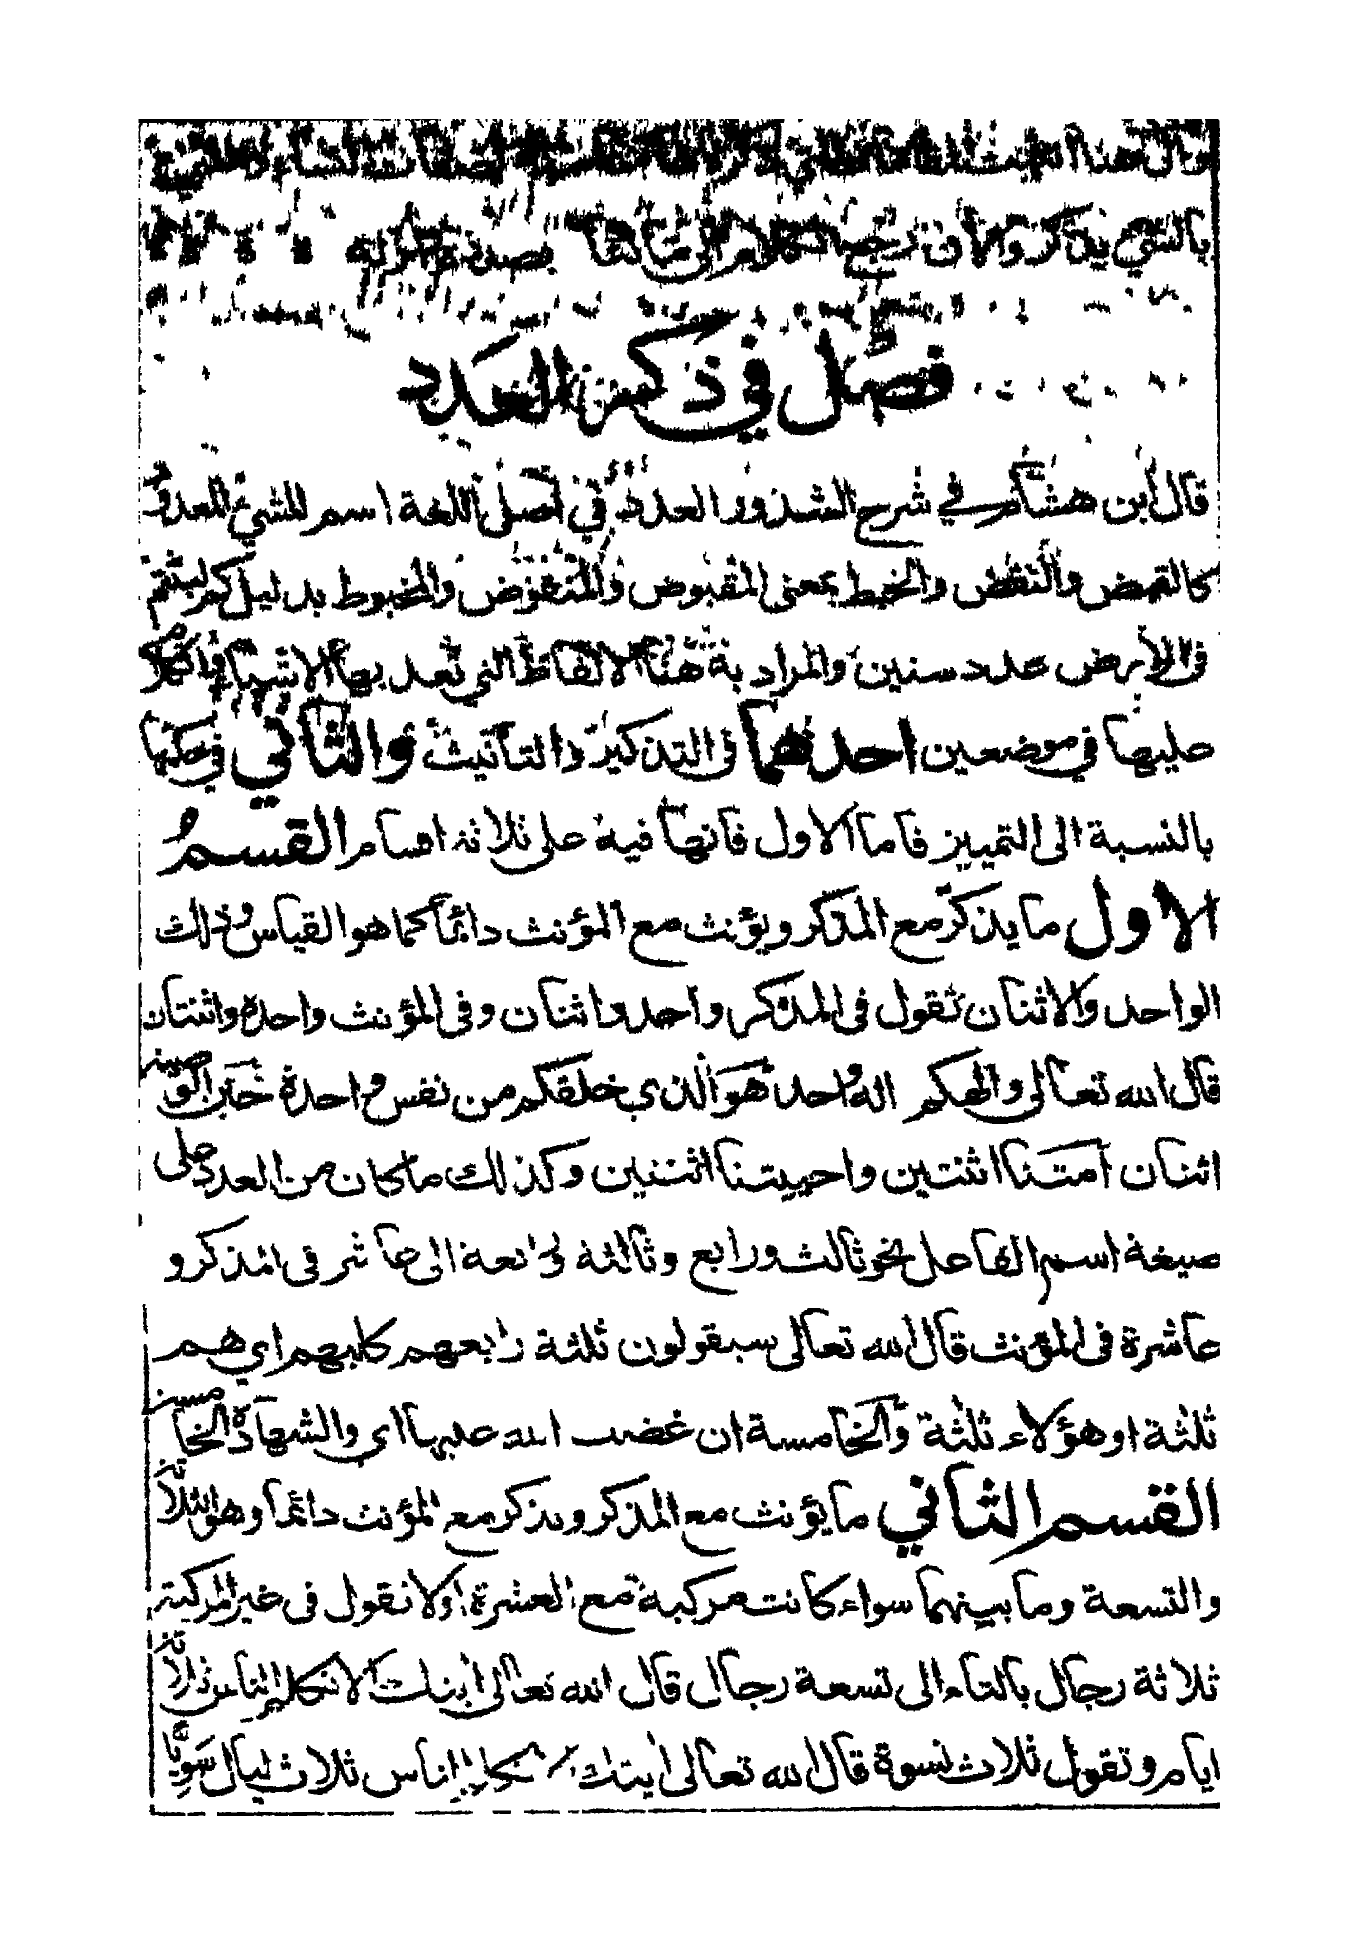 بالشيء يذكر والا في رخصة الكلام الى مثالها
فصل في ذكر العدد
قال ابن هشام في شرح الشذور العدد في اصل اللغة اسم للشيء المعدود
كالقبض والنقض والخبط بمعنى المقبوض والمنقوض والمخبوط بدليل كم لبثتم
في الأرض عدد سنين والمراد به هنا الالفاظ التي تعد بها الاشياء والكلام
عليها في موضعين احدهما في التذكير والتأنيث والثاني في حكمها
بالنسبة الى التمييز فاما الاول فانها فيه على ثلاثة اقسام القسم
الاول ما يذكر مع المذكر ويؤنث مع المؤنث دائما كما هو القياس وذلك
الواحد والاثنان تقول في المذكر واحد واثنان وفي المؤنث واحدة واثنتان
قال الله تعالى والهكم اله واحد هو الذي خلقكم من نفس واحدة حين الوصية
اثنان امتنا اثنتين واحييتنا اثنتين وكذلك ما كان من العدد على
صيغة اسم الفاعل نحو ثالث ورابع وثالثة ورابعة الى عاشر في المذكر و
عاشرة في المؤنث قال الله تعالى سيقولون ثلثة رابعهم كلبهم اي هم
ثلثة او هؤلاء ثلثة والخامسة ان غضب الله عليها اي والشهادة الخامسة
القسم الثاني ما يؤنث مع المذكر ويذكر مع المؤنث دائما وهو الثلاثة
والتسعة وما بينهما سواء كانت مركبة مع العشرة اولا تقول في غير المركبة
ثلاثة رجال بالتاء الى تسعة رجال قال الله تعالى ايتك الا تكلم الناس ثلاثة
ايام وتقول ثلاث نسوة قال الله تعالى ايتك الا تكلم الناس ثلاث ليال سويا